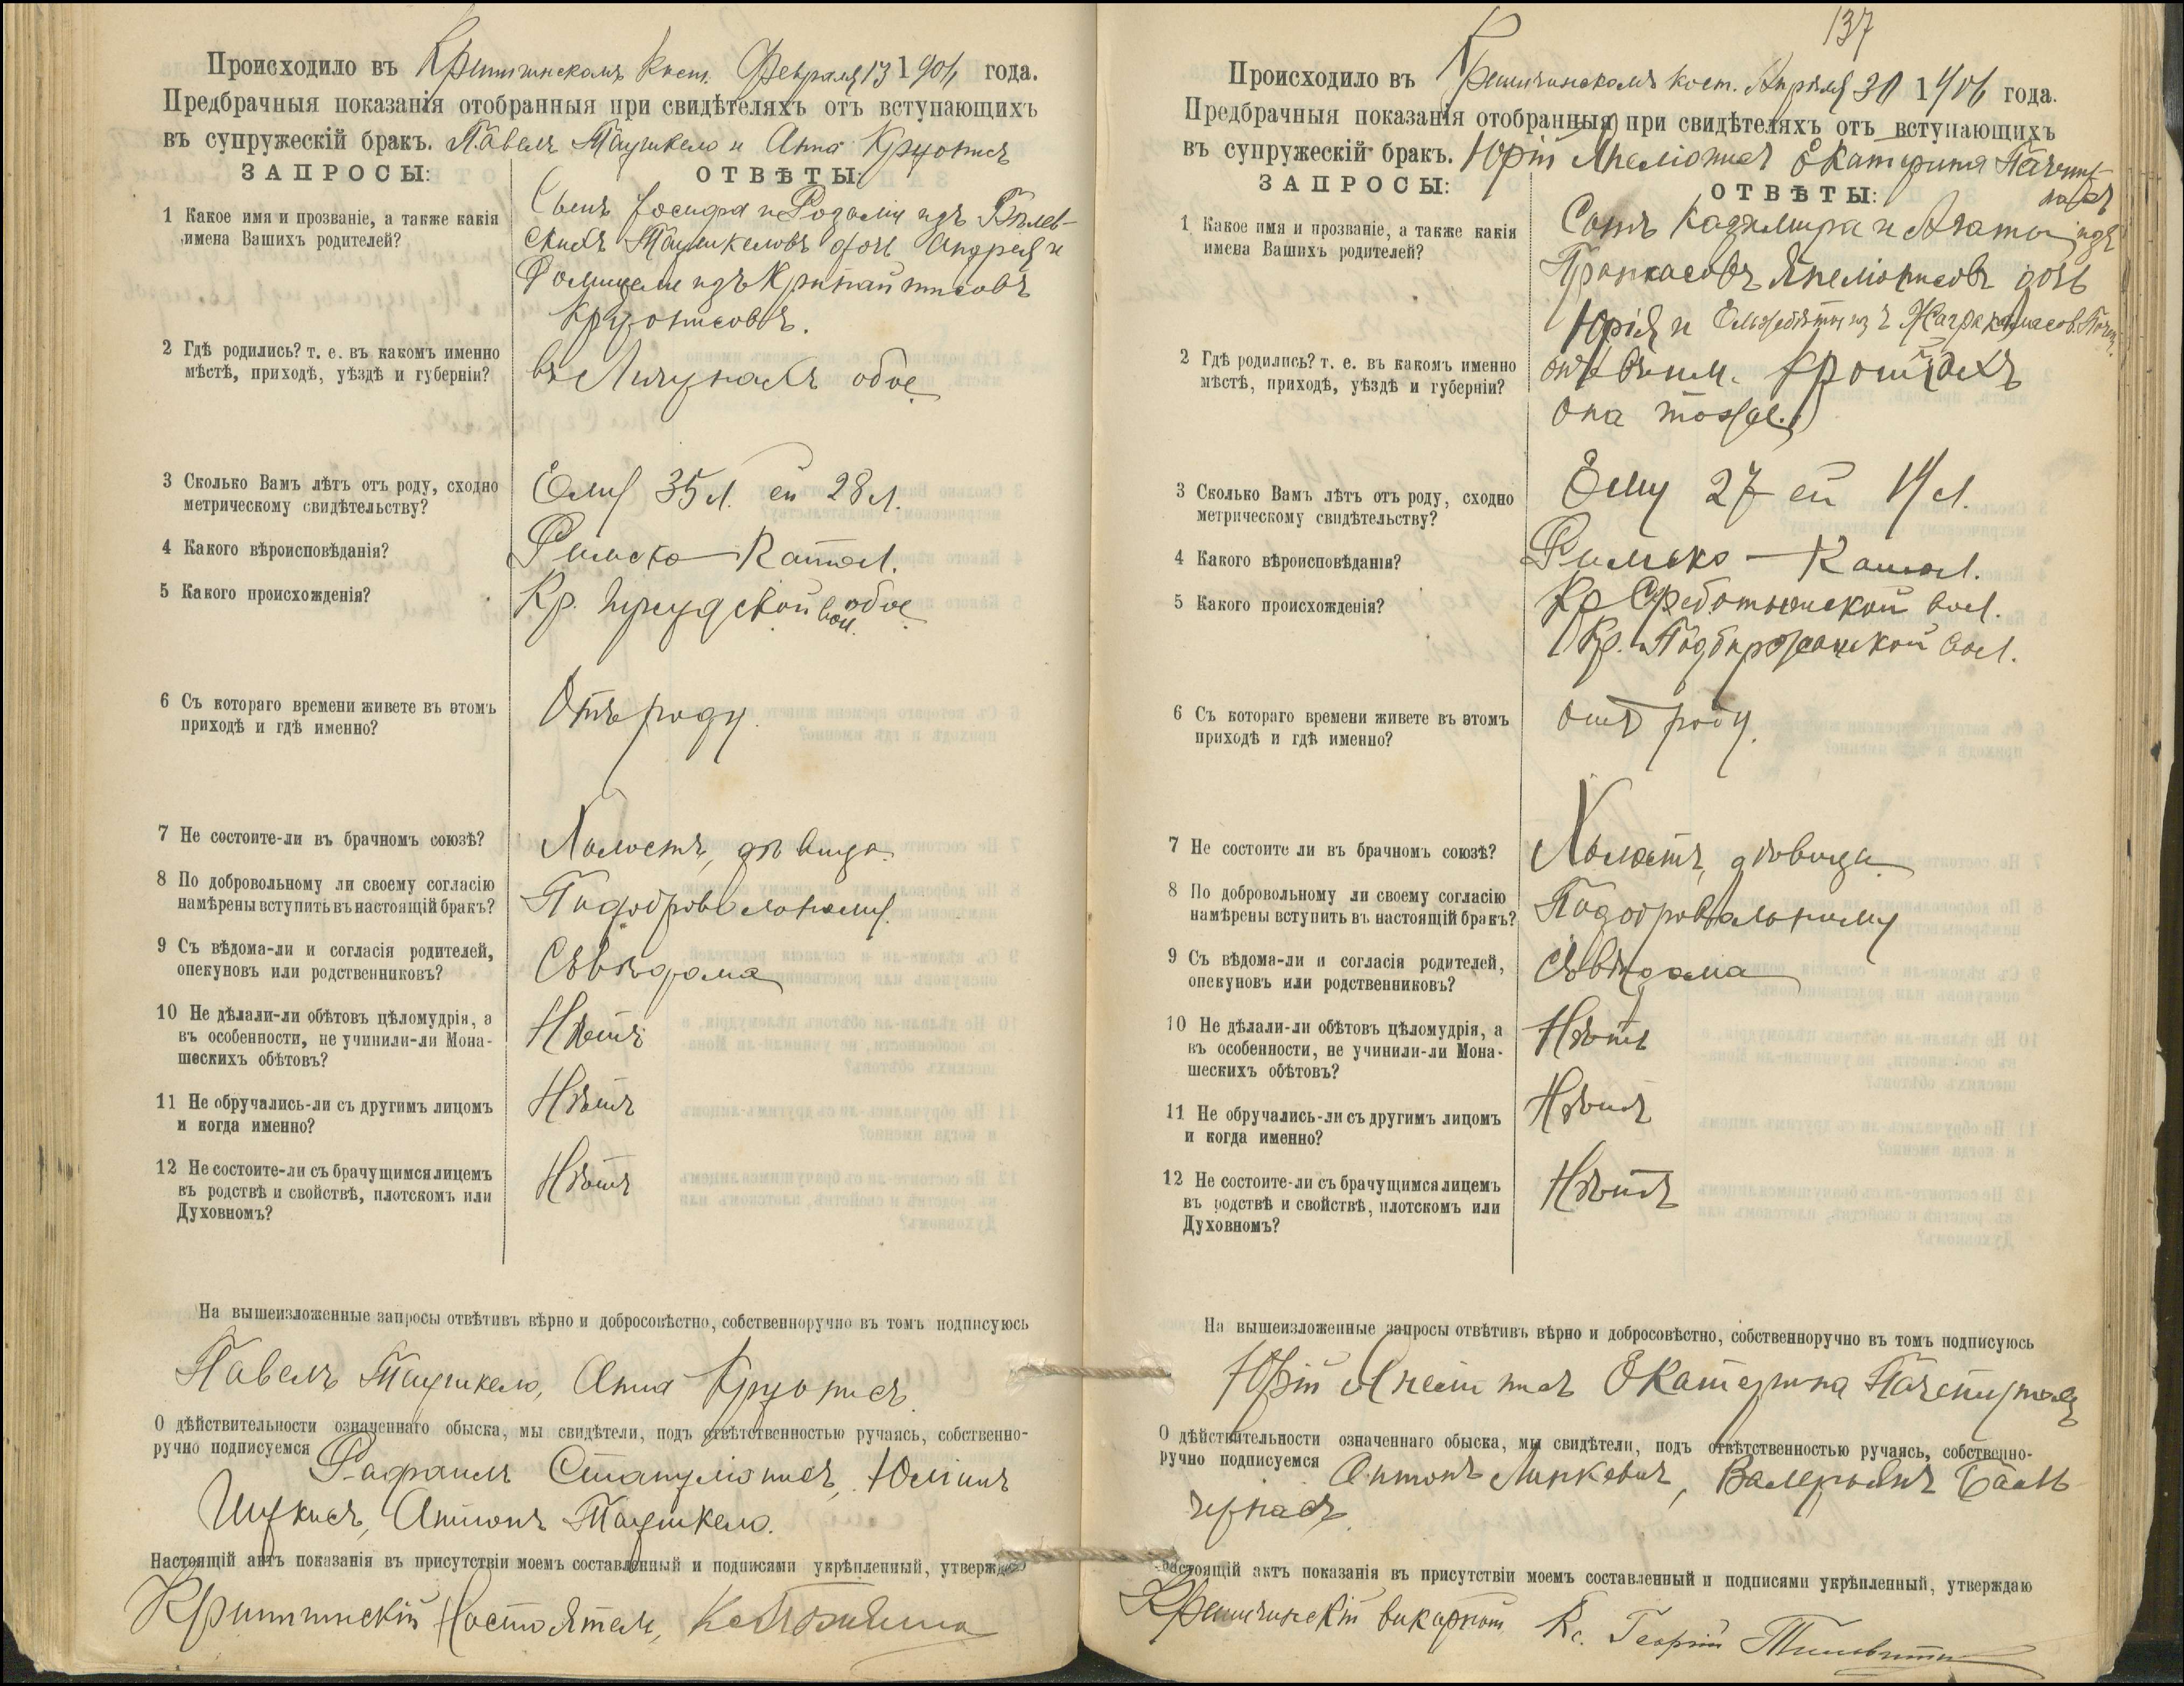 Происходило въ Криттинскомъ Кост. Февраля 13 1906 года.
Предбрачныя показанія отобранныя при свидѣтеляхъ отъ вступающихъ
въ супружескій бракъ. Павелъ Таушкело и Анна Круопис
ЗАПРОСЫ:
ОТВѢТЫ:
1 Какое имя и прозваніе, а также какія
имена Вашихъ родителей?
Сынъ Іосифа и Розаліи изъ
Таушкеловъ дочь Андрея и
изъ
2 Гдѣ родились? т. е. въ какомъ именно
мѣстѣ, приходѣ, уѣздѣ и губерніи?
въ обое
3 Сколько Вамъ лѣтъ отъ роду, сходно
метрическому свидѣтельству?
Ему 35 л. ей 28 л.
4 Какого вѣроисповѣданія?
Римско-Катол.
5 Какого происхожденія?
Кр. вол. обое
6 Съ котораго времени живете въ этомъ
приходѣ и гдѣ именно?
Отъ роду.
7 Не состоите-ли въ брачномъ союзѣ?
Холостъ, дѣвица
8 По добровольному ли своему согласію
намѣрены вступить въ настоящій бракъ?
По добровольному
9 Съ вѣдома-ли и согласія родителей,
опекуновъ или родственниковъ?
Съ вѣдома
10 Не дѣлали-ли обѣтовъ цѣломудрія, а
въ особенности, не учинили-ли Мона-
шескихъ обѣтовъ?
Нѣтъ
11 Не обручались-ли съ другимъ лицомъ
и когда именно?
Нѣтъ
12 Не состоите-ли съ брачущимся лицемъ
въ родствѣ и свойствѣ, плотскомъ или
Духовномъ?
Нѣтъ
На вышеизложенные запросы отвѣтивъ вѣрно и добросовѣстно, собственноручно въ томъ подписуюсь
Павелъ Таушкело, Анна Круопис
О дѣйствительности означеннаго обыска, мы свидѣтели, подъ отвѣтственностью ручаясь, собственно-
ручно подписуемся Рафаилъ Юліанъ
Антонъ Таушкело.
Настоящій актъ показанія въ присутствіи моемъ составленный и подписями укрѣпленный, утверждаю
Криттинскій Настоятель,
137
Происходило въ кост. Апрѣля 30 1906 года.
Предбрачныя показанія отобранныя при свидѣтеляхъ отъ вступающихъ
въ супружескій бракъ. Юрій Екатерина
ЗАПРОСЫ:
ОТВѢТЫ:
1 Какое имя и прозваніе, а также какія
имена Вашихъ родителей?
Сынъ Казимира и Агаты изъ
дочь
Юрія и Елизабеты изъ
2 Гдѣ родились? т. е. въ какомъ именно
мѣстѣ, приходѣ, уѣздѣ и губерніи?
она тоже.
3 Сколько Вамъ лѣтъ отъ роду, сходно
метрическому свидѣтельству?
Ему 27 ей 19 л.
4 Какого вѣроисповѣданія?
Римско-Катол.
5 Какого происхожденія?
Кр. вол.
Кр. Подбирожанской вол.
6 Съ котораго времени живете въ этомъ
приходѣ и гдѣ именно?
Отъ роду.
7 Не состоите ли въ брачномъ союзѣ?
Холостъ, дѣвица
8 По добровольному ли своему согласію
намѣрены вступить въ настоящій бракъ?
По добровольному
9 Съ вѣдома-ли и согласія родителей,
опекуновъ или родственниковъ?
Съ вѣдома
10 Не дѣлали-ли обѣтовъ цѣломудрія, а
въ особенности, не учинили-ли Мона-
шескихъ обѣтовъ?
Нѣтъ
11 Не обручались-ли съ другимъ лицомъ
и когда именно?
Нѣтъ
12 Не состоите-ли съ брачущимся лицемъ
въ родствѣ и свойствѣ, плотскомъ или
Духовномъ?
Нѣтъ
На вышеизложенные запросы отвѣтивъ вѣрно и добросовѣстно, собственноручно въ томъ подписуюсь
Юрій Екатерина
О дѣйствительности означеннаго обыска, мы свидѣтели, подъ отвѣтственностью ручаясь, собственно-
ручно подписуемся Антонъ Линкевич, Валерьянъ Баль-
чунасъ.
Настоящій актъ показанія въ присутствіи моемъ составленный и подписями укрѣпленный, утверждаю
викарный Кс. Георгій